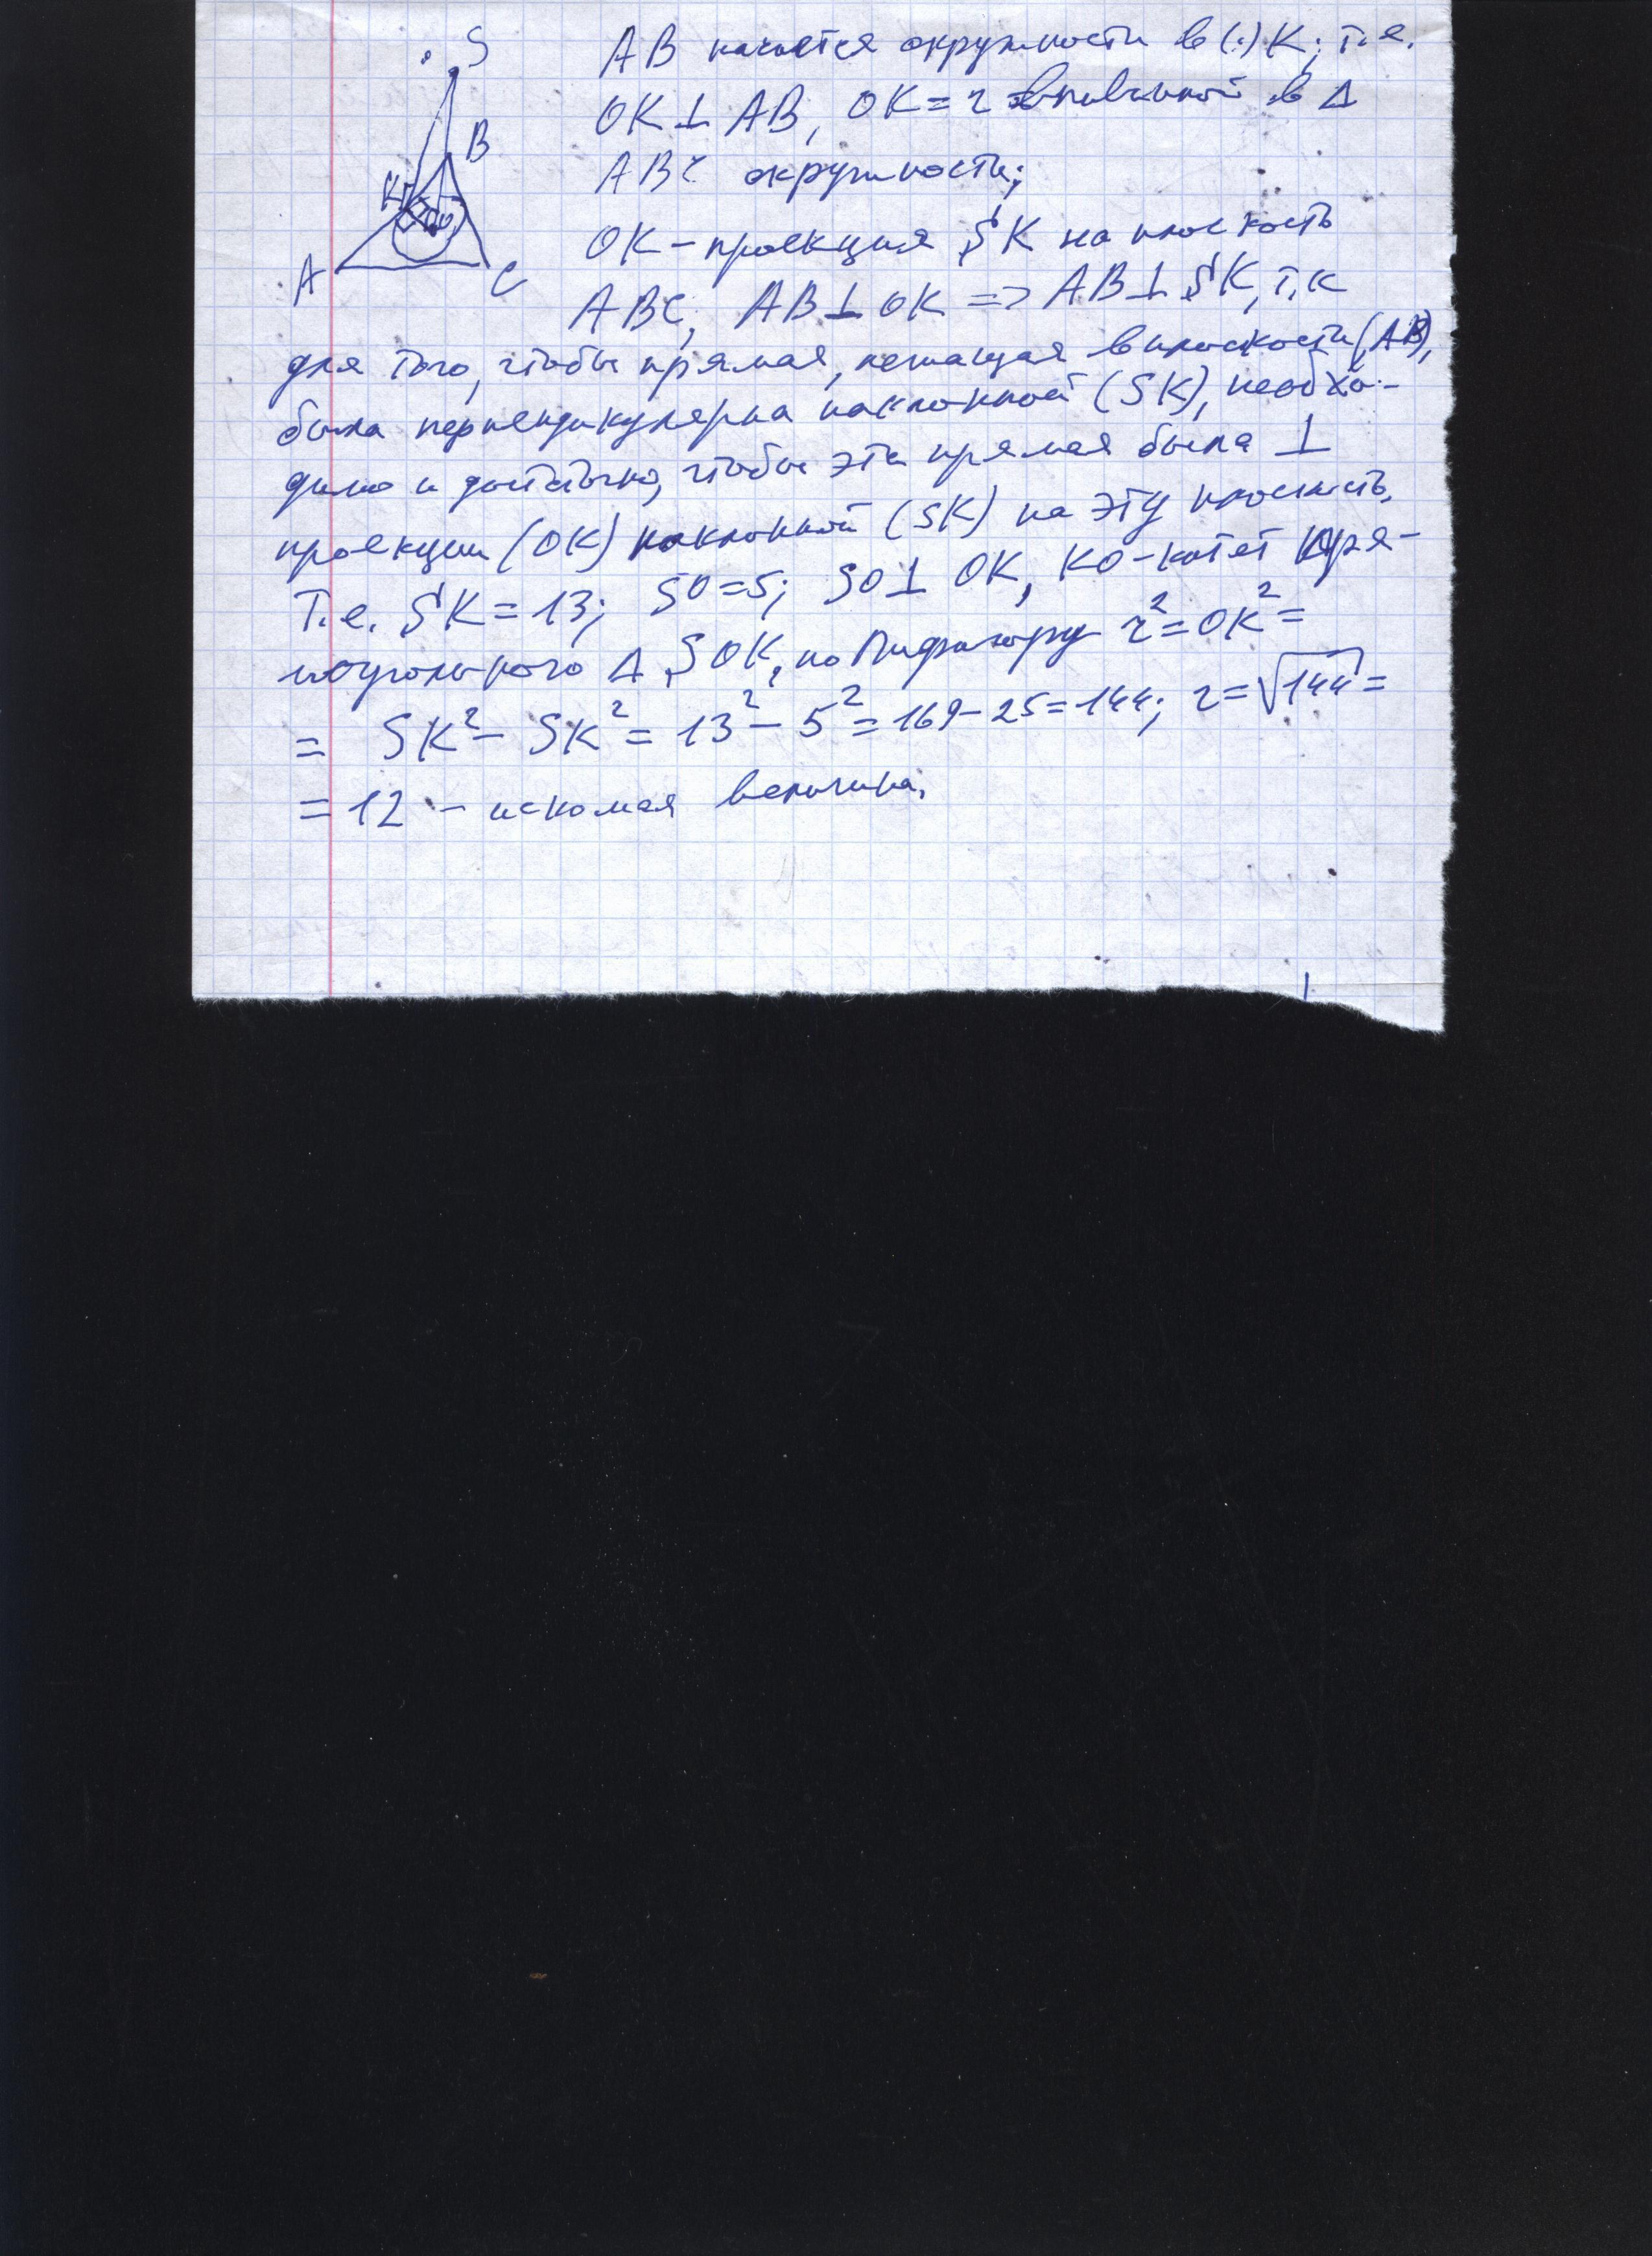 S
B
K
O
A
C
AB касается окружности в (·) K; т.е.
OK ⊥ AB, OK = r вписанной в Δ
ABC окружности;
OK – проекция SK на плоскость
ABC, AB ⊥ OK => AB ⊥ SK, т.к
для того, чтобы прямая, лежащая в плоскости (AB),
была перпендикулярна наклонной (SK), необхо-
димо и достаточно, чтобы эта прямая была ⊥
проекции (OK) наклонной (SK) на эту плоскость.
Т.е. SK = 13; SO = 5; SO ⊥ OK, KO – катет пря-
моугольного Δ SOK, по Пифагору r² = OK² =
= SK² – SK² = 13² – 5² = 169 – 25 = 144; r = √144 =
= 12 – искомая величина.